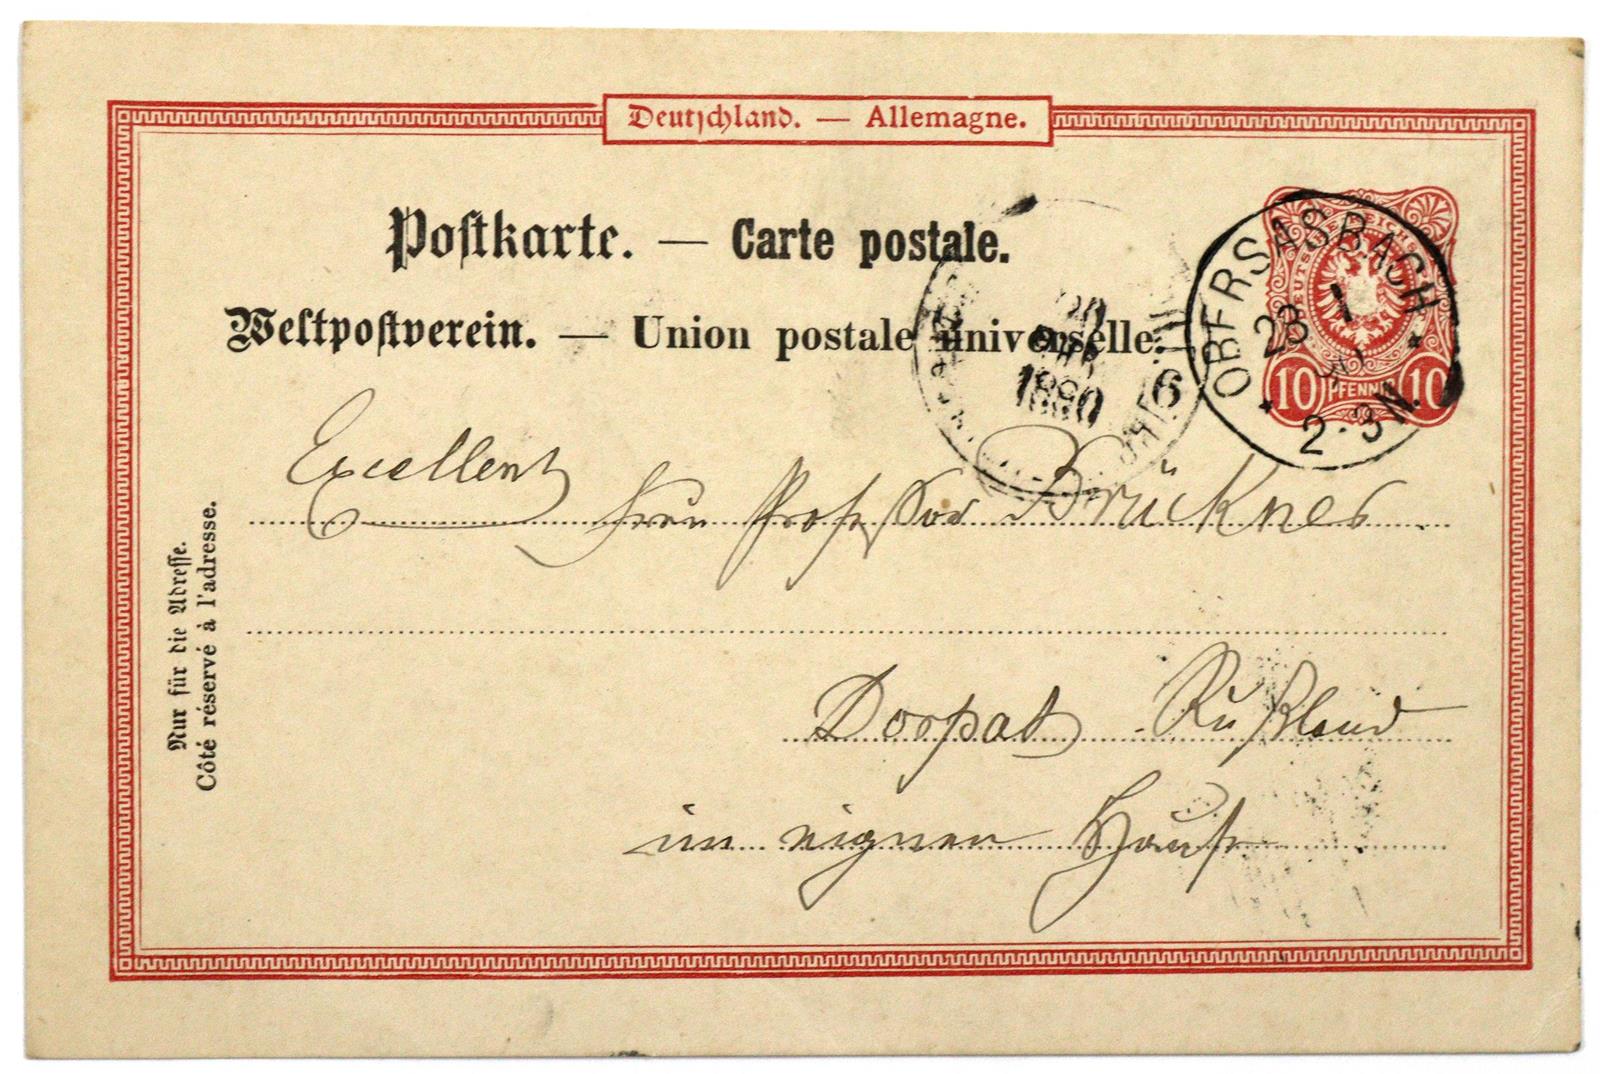 Deutschland. — Allemagne.
Postkarte. — Carte postale.
Weltpostverein. — Union postale universelle.
DEUTSCHE REICHSPOST
10 PFENNIG 10
OBERSASBACH
23 1
2-3N.
1890
6
Excellenz Herrn Professor Brückner
Dorpat Rußland
im eignen Hause
Nur für die Adresse.
Côté réservé à l'adresse.